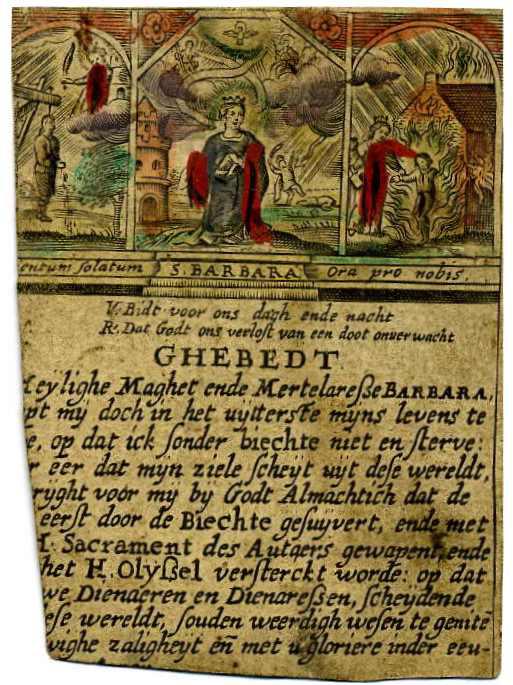 entum solatum S. BARBARA Ora pro nobis.
V. Bidt voor ons dagh ende nacht
R. Dat Godt ons verlost van een doot onverwacht
GHEBEDT
eylighe Maghet ende Mertelareßse BARBARA,
pt mij doch in het uijtterste mijns levens te
e, op dat ick sonder biechte niet en sterve:
r eer dat mijn ziele scheyt uijt dese wereldt,
rijght voor mij by Godt Almachtich dat de
eerst door de Biechte gesuyvert, ende met
H. Sacrament des Autaers gewapent, ende
het H. Olyßsel versterckt worde: op dat
we Dienaeren en Dienareßsen, scheydende
ese wereldt, souden weerdigh wesen te genitē
wighe zaligheyt en̄ met u gloriere inder eeu-